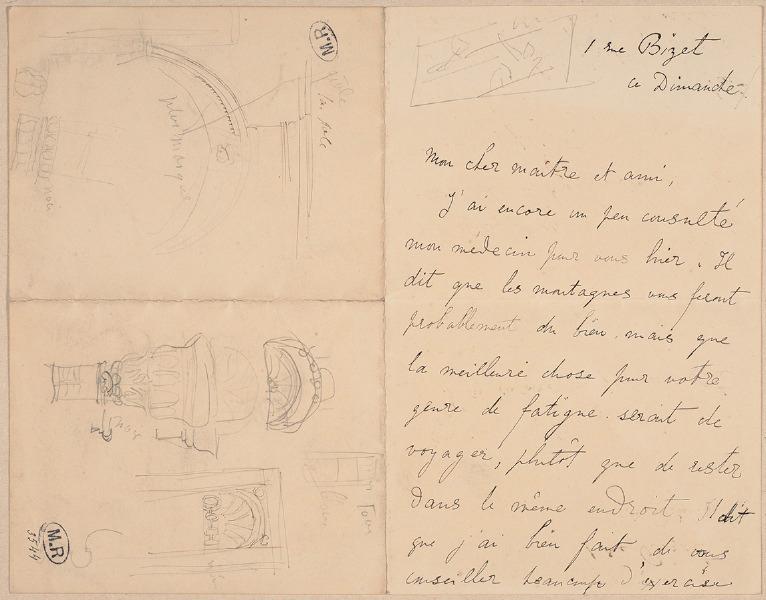 1 rue Bizet
ce Dimanche.
Mon cher maître et ami,
J'ai encore un peu consulté
mon médecin pour vous hier. Il
dit que les montagnes vous feront
probablement du bien mais que
la meilleure chose pour votre
genre de fatigue serait de
voyager, plutôt que de rester
dans le même endroit. Il dit
que j'ai bien fait de vous
conseiller beaucoup d'exercise
M.R
la
plus marqué
noir
M.R
3544